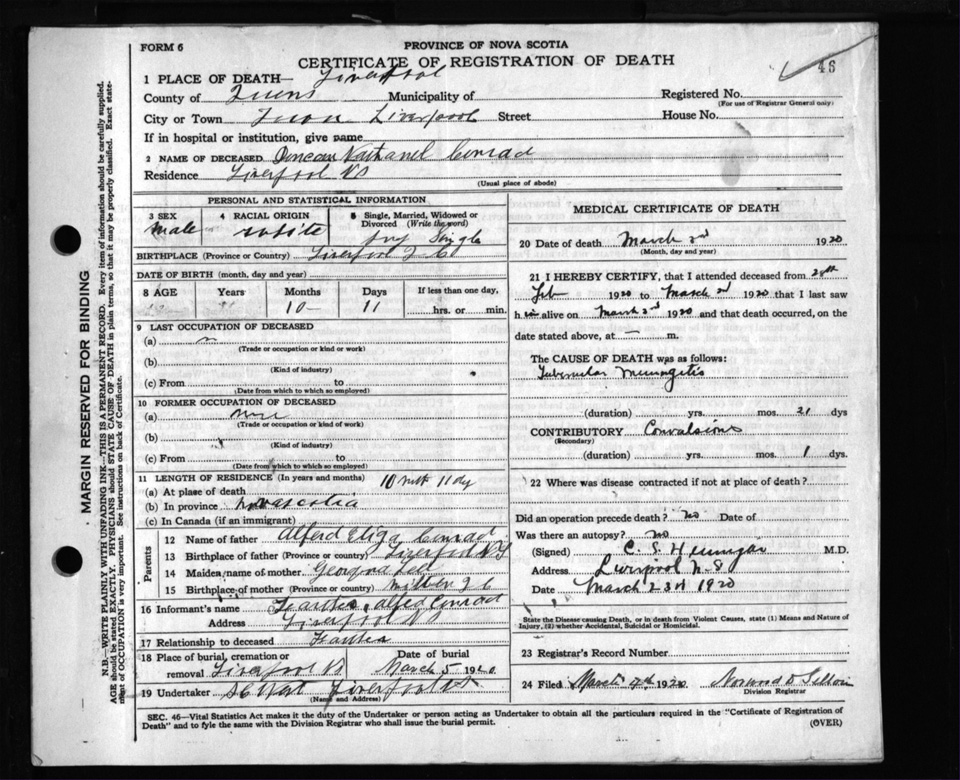 FORM 6
PROVINCE OF NOVA SCOTIA
CERTIFICATE OF REGISTRATION OF DEATH
46
1 PLACE OF DEATH— Liverpool
County of Queens Municipality of Registered No.
(For use of Registrar General only)
City or Town Liverpool Street House No.
If in hospital or institution, give name
2 NAME OF DECEASED Duncan Nathanel Conrad
Residence Liverpool NS
(Usual place of abode)
PERSONAL AND STATISTICAL INFORMATION
3 SEX 4 RACIAL ORIGIN 5 Single, Married, Widowed or Divorced (Write the word)
Male white Single
BIRTHPLACE (Province or Country) Liverpool
DATE OF BIRTH (month, day and year)
8 AGE Years Months Days If less than one day,
10 11 hrs. or min.
9 LAST OCCUPATION OF DECEASED
(a)
(Trade or occupation or kind or work)
(b)
(Kind of industry)
(c) From to
(Date from which to which so employed)
10 FORMER OCCUPATION OF DECEASED
(a)
(Trade or occupation or kind of work)
(b)
(Kind of industry)
(c) From to
(Date from which to which so employed)
11 LENGTH OF RESIDENCE (In years and months) 10 mth 11 dy
(a) At place of death
(b) In province Novascotia
(c) In Canada (if an immigrant)
Parents
12 Name of father Alferd Conrad
13 Birthplace of father (Province or country) Liverpool NS
14 Maiden name of mother
15 Birthplace of mother (Province or country)
16 Informant's name Conrad
Address Liverpool NS
17 Relationship to deceased
18 Place of burial, cremation or removal Liverpool NS Date of burial March 5 1920
19 Undertaker Liverpool
(Name and Address)
MEDICAL CERTIFICATE OF DEATH
20 Date of death March 2nd 1920
(Month, day and year)
21 I HEREBY CERTIFY, that I attended deceased from 28th
Feb 1920 to March 2nd 1920 that I last saw
h im alive on March 2nd 1920 and that death occurred, on
date stated above, at — m.
The CAUSE OF DEATH was as follows:
Tubercular Meningitis
(duration) yrs. mos. 21 dys
CONTRIBUTORY Convalsions
(Secondary)
(duration) yrs. mos. 1 dys
22 Where was disease contracted if not at place of death?
Did an operation precede death? no Date of
Was there an autopsy? no
(Signed) C. S. M.D.
Address Liverpool N.S
Date March 1920
State the Disease causing Death, or in death from Violent Causes, state (1) Means and Nature of Injury, (2) whether Accidental, Suicidal or Homicidal.
23 Registrar's Record Number
24 Filed March 4th 1920
Division Registrar
SEC. 46—Vital Statistics Act makes it the duty of the Undertaker or person acting as Undertaker to obtain all the particulars required in the "Certificate of Registration of
Death" and to file the same with the Division Registrar who shall issue the burial permit. (OVER)
MARGIN RESERVED FOR BINDING
N.B.—WRITE PLAINLY WITH UNFADING INK—THIS IS A PERMANENT RECORD. Every item of information should be carefully supplied.
AGE should be stated EXACTLY. PHYSICIANS should STATE CAUSE OF DEATH in plain terms, so that it may be properly classified. Exact state-
ment of OCCUPATION is very important. See instructions on back of Certificate.